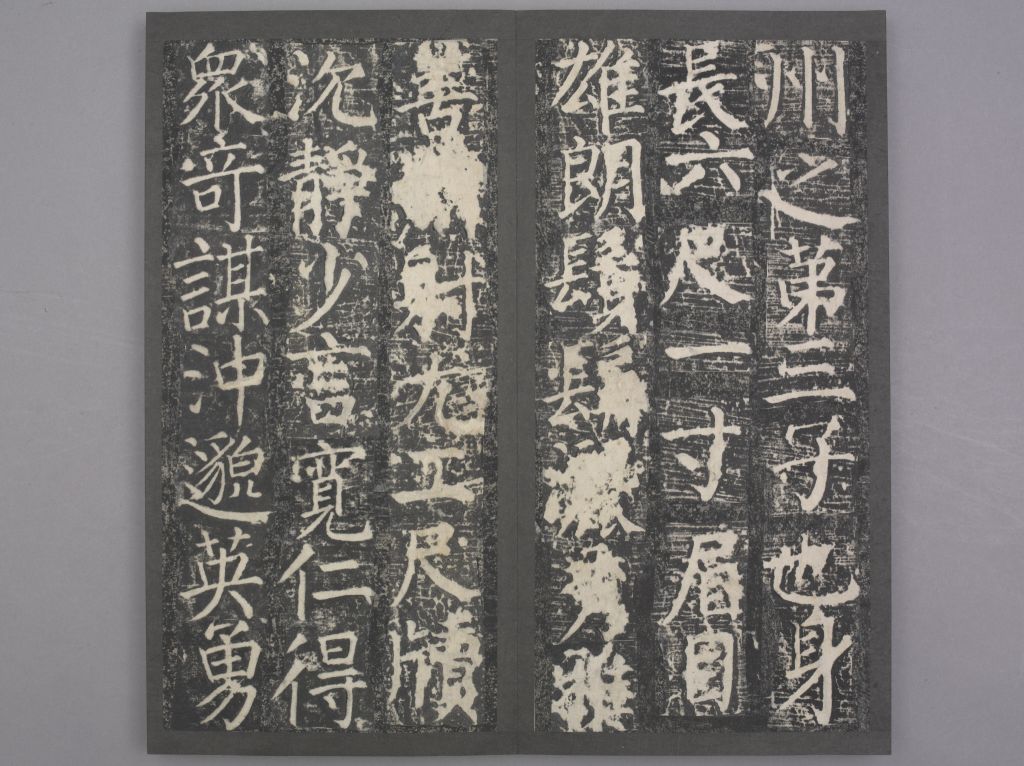 州之第三子也身
長六尺一寸眉目
雄朗鬚髯秀雅
善射尤工尺牘
沉靜少言寬仁得
眾竒謀沖邈英勇